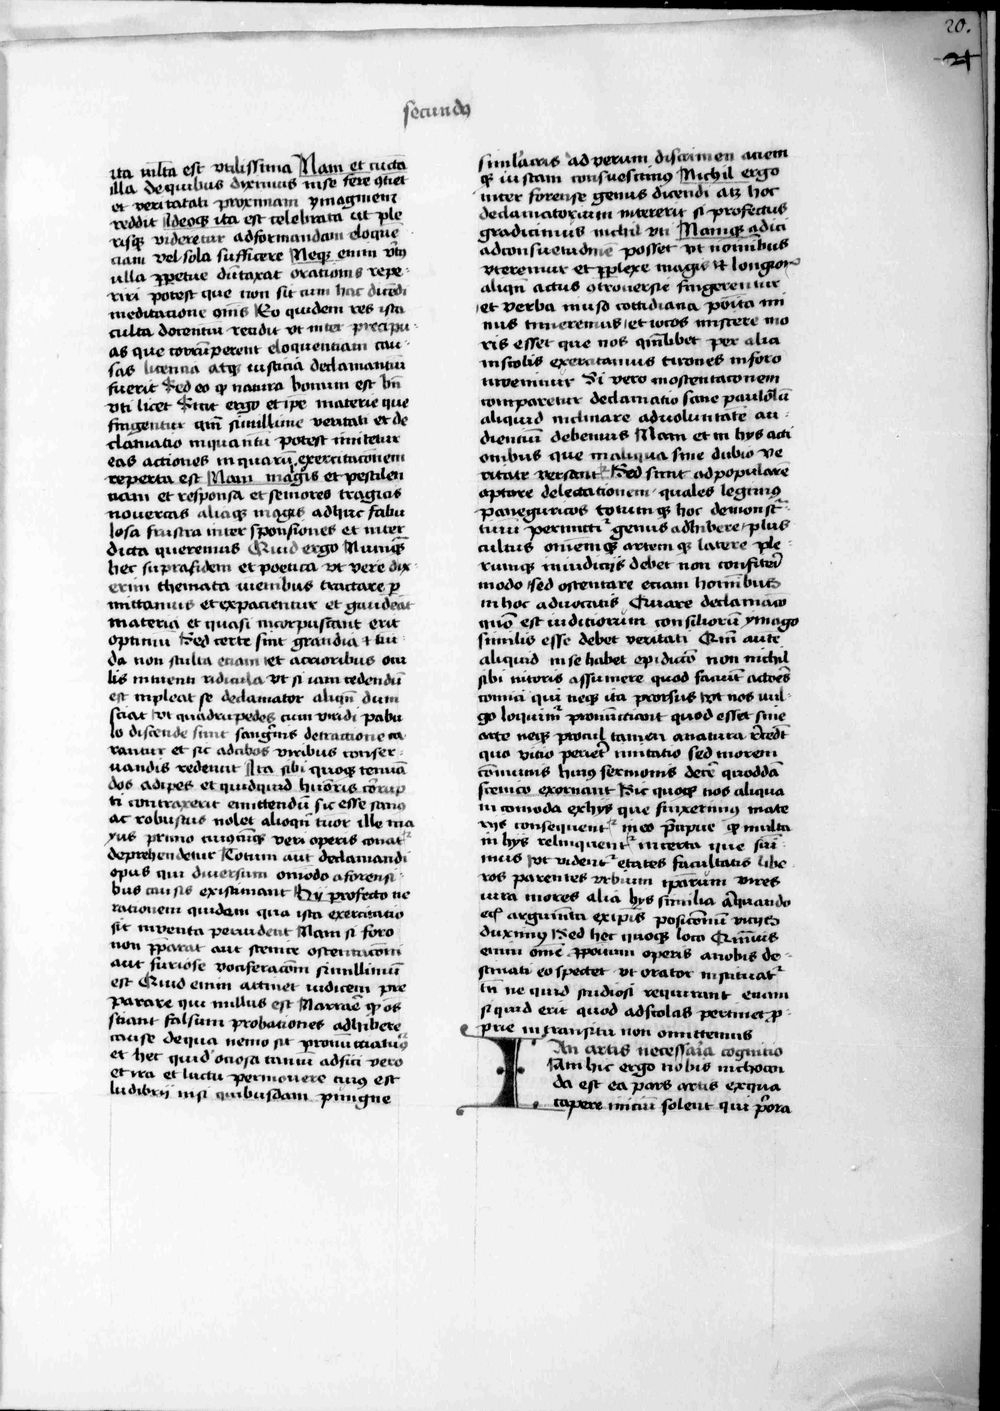 20.
21
secundus
ita mlta est vtilissima Nam et cuncta
illa de quibus diximus in se fere 9tinet
et veritati proximam ymaginem
reddit Ideoqꝫ ita est celebrata ut ple
risqꝫ videretur ad formandam eloque
ciam vel sola sufficere Neqꝫ enim
ulla ꝑpetue dūtaxat orationis repe-
riri potest que non sit cum hac dicēdi
meditatione Eo quidem res ista
culpa docentiū recidit vt inter precipu-
as que corrūperent eloquentiam cau-
sas licentia atqꝫ iusticia declamantiū
fuerit Sed eo natura bonum est bn̄
vti licet Sint ergo et ip̄e materie que
fingentur simillime veritati et de
clamatio inquantū potest imitetur
eas actiones in quarū exercitationem
reperta est Nam magis et pestilen
tiam et responsa et seuiores tragicis
nouercas aliaqꝫ magis adhuc fabu
losa frustra inter sponsiones et inter
dicta queremus Quid ergo Numqꝫ
hec supra fidem et poetica vt vere dix-
erim themata iuenibus tractare ꝑ
mittamus et expacientur et gaudeāt
materia et quasi incorpuscant erit
optimū Sed certe sint grandia et tui-
da non stulta etiam et acrioribus ocu
lis intuenti ridicula vt si iam cedendū
est impleat se declamator aliqn̄ dum
sciat vt quadrupedes cum viridi pabu
lo distende sunt sangīnis detractione cu
rantur et sic ad cibos viribus conser-
uandis redeunt Ita sibi quoqꝫ tenuā
dos adipes et quidquid humoris corrup
ti contraxerit emittendū si esse sanus
ac robustus uolet alioqn̄ tuor ille ina
nis primo cuiuscūqꝫ veri operis conatu
deprehendetur Totum aut declamandi
opus qui diuersum omodo a forensi-
bus causis existimant Hy profecto ne
rationem quidam qua ista exercitatio
sit inuenta peruident Nam si foro
non p̄parat aut scenice ostentacōni
aut furiose vociferacōni simillimū
est Quid enim attinet iudicem pre
parare qui nullus est Narrare quod os
sciant falsum probationes adhibere
cause de qua nemo sit pronūctiaturꝰ
et hec quid ociosa tantū adfici vero
et ira et luctu permouere cuius est
ludibrij nisi quibusdam pungne
simulacris ad verum discrimen aciem
qꝫ iustam consuescimus Nichil ergo
inter forense genus dicendi atqꝫ hoc
declamatorium intererit si profectus
gradicimus nichil vti Namqꝫ adici
ad consuetudinē posset vt nominibus
vteremur et ꝑplexe magis et longior
aliqn̄ actus otrouersie fingerentur
et verba in usu cottidiana posita mi
nus timeremus et iocos inserere mo
ris esset que nos quālibet per alia
in scolis exercitamus tirones in foro
inueniunt Si vero in ostentaconem
comparetur declamatio sane paulolū
aliquid inclinare ad voluntatē au-
dientiū debemus Nam et in hys acti
onibus que in aliqua sine dubio ve
ritate versant Sed sunt ad popularē
aptate delectationem quales legimus
paneguricos totumqꝫ hoc demonst-
tiuū permittit genus adhibere plus
cultus omnemqꝫ artem qꝫ latere ple-
rumqꝫ in iudicijs debet non confiteri
modo sed ostentare etiam hominibus
in hoc aduocatis Quare declamacio
quō est iudiciorum consiliorū ymago
similis esse debet veritati Qm̄ autē
aliquid in se habet epidicton non nichil
sibi nitoris assumere quod faciūt actores
comici qui neqꝫ ita prorsus vt nos uul-
go loquimur pronūctiant quod esset sine
arte neqꝫ procul tamen a natura recedūt
quo vitio periret imitatio sed morem
cōmunis huius sermonis decore quoddā
scenico exornant Sic quoqꝫ nos aliqua
in comoda ex hys que finxerimus mate
rijs consequent in eo p̄cipue qꝫ multa
in hys relinquent incerta que sūi-
mus vt vident etates facultatis libe
ros parentes vrbium ip̄arum vires
iura mores alia hys similia aliquando
argumēta exip̄is positionū vicijs
duximus Sed hec quoqꝫ loco Quīuis
enim omē ꝓpositum operis a nobis de-
stinati eo spectet vt orator instituat
tn̄ ne quid studiosi requirant etiam
si quid erit quod ad scolas pertinet ꝓ-
prie in transitu non omittemus
IAn artis necessaria cognitio
Iam hic ergo nobis inchoan
da est ea pars artis ex qua
capere iniciū solent qui priora